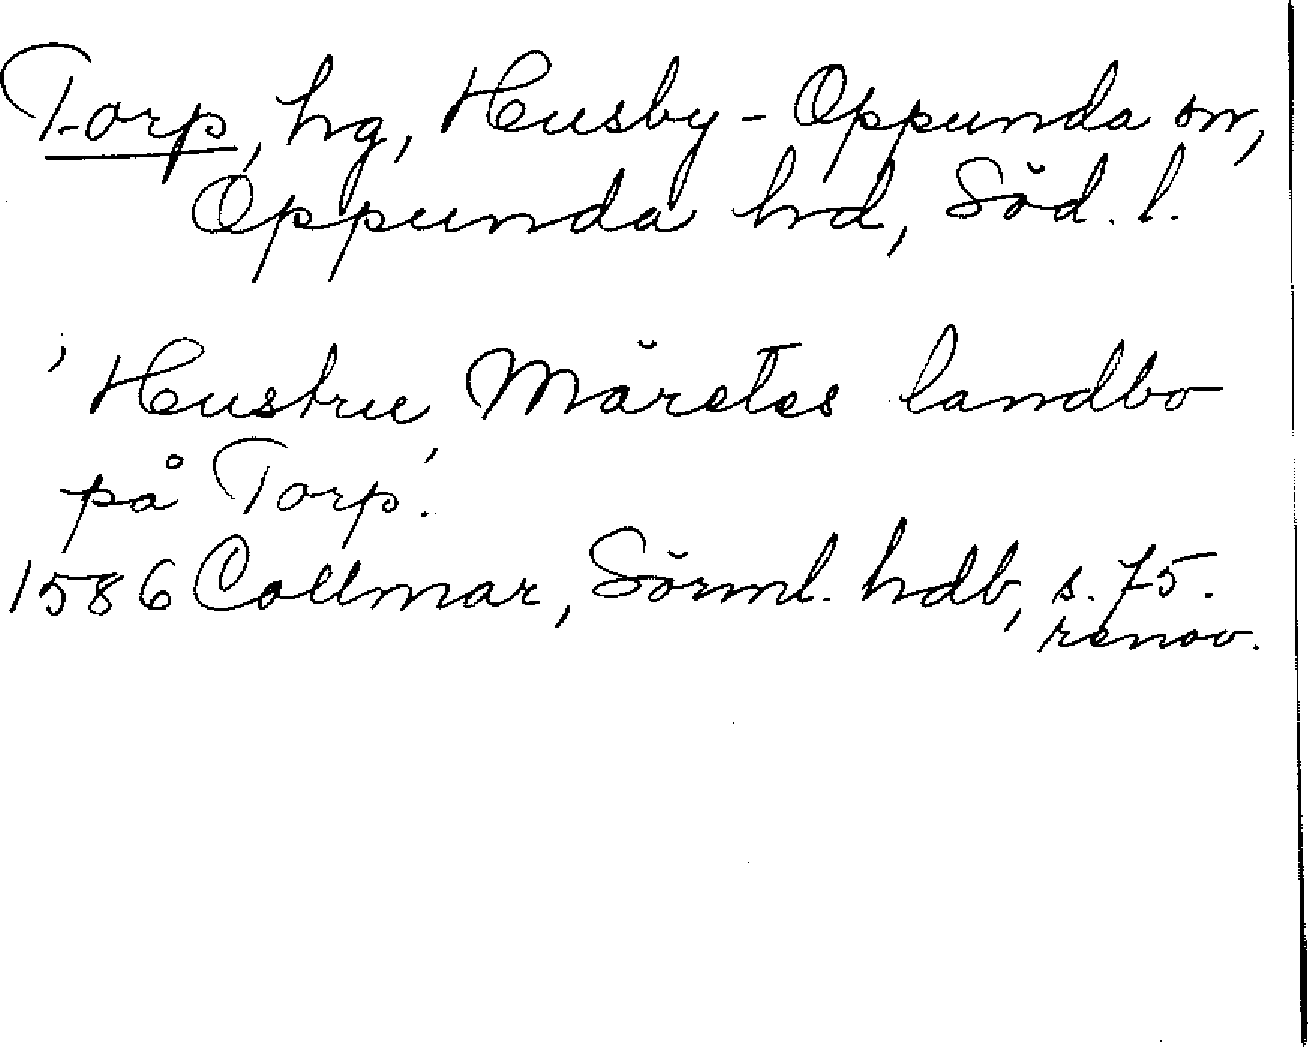 Torp, hg, Husby-Oppunda sn,
Oppunda hd, Söd. l.
'Hustru Märetes landbo
på Torp'.
1586 Collmar, Sörml. hdb, s. 75.
renov.